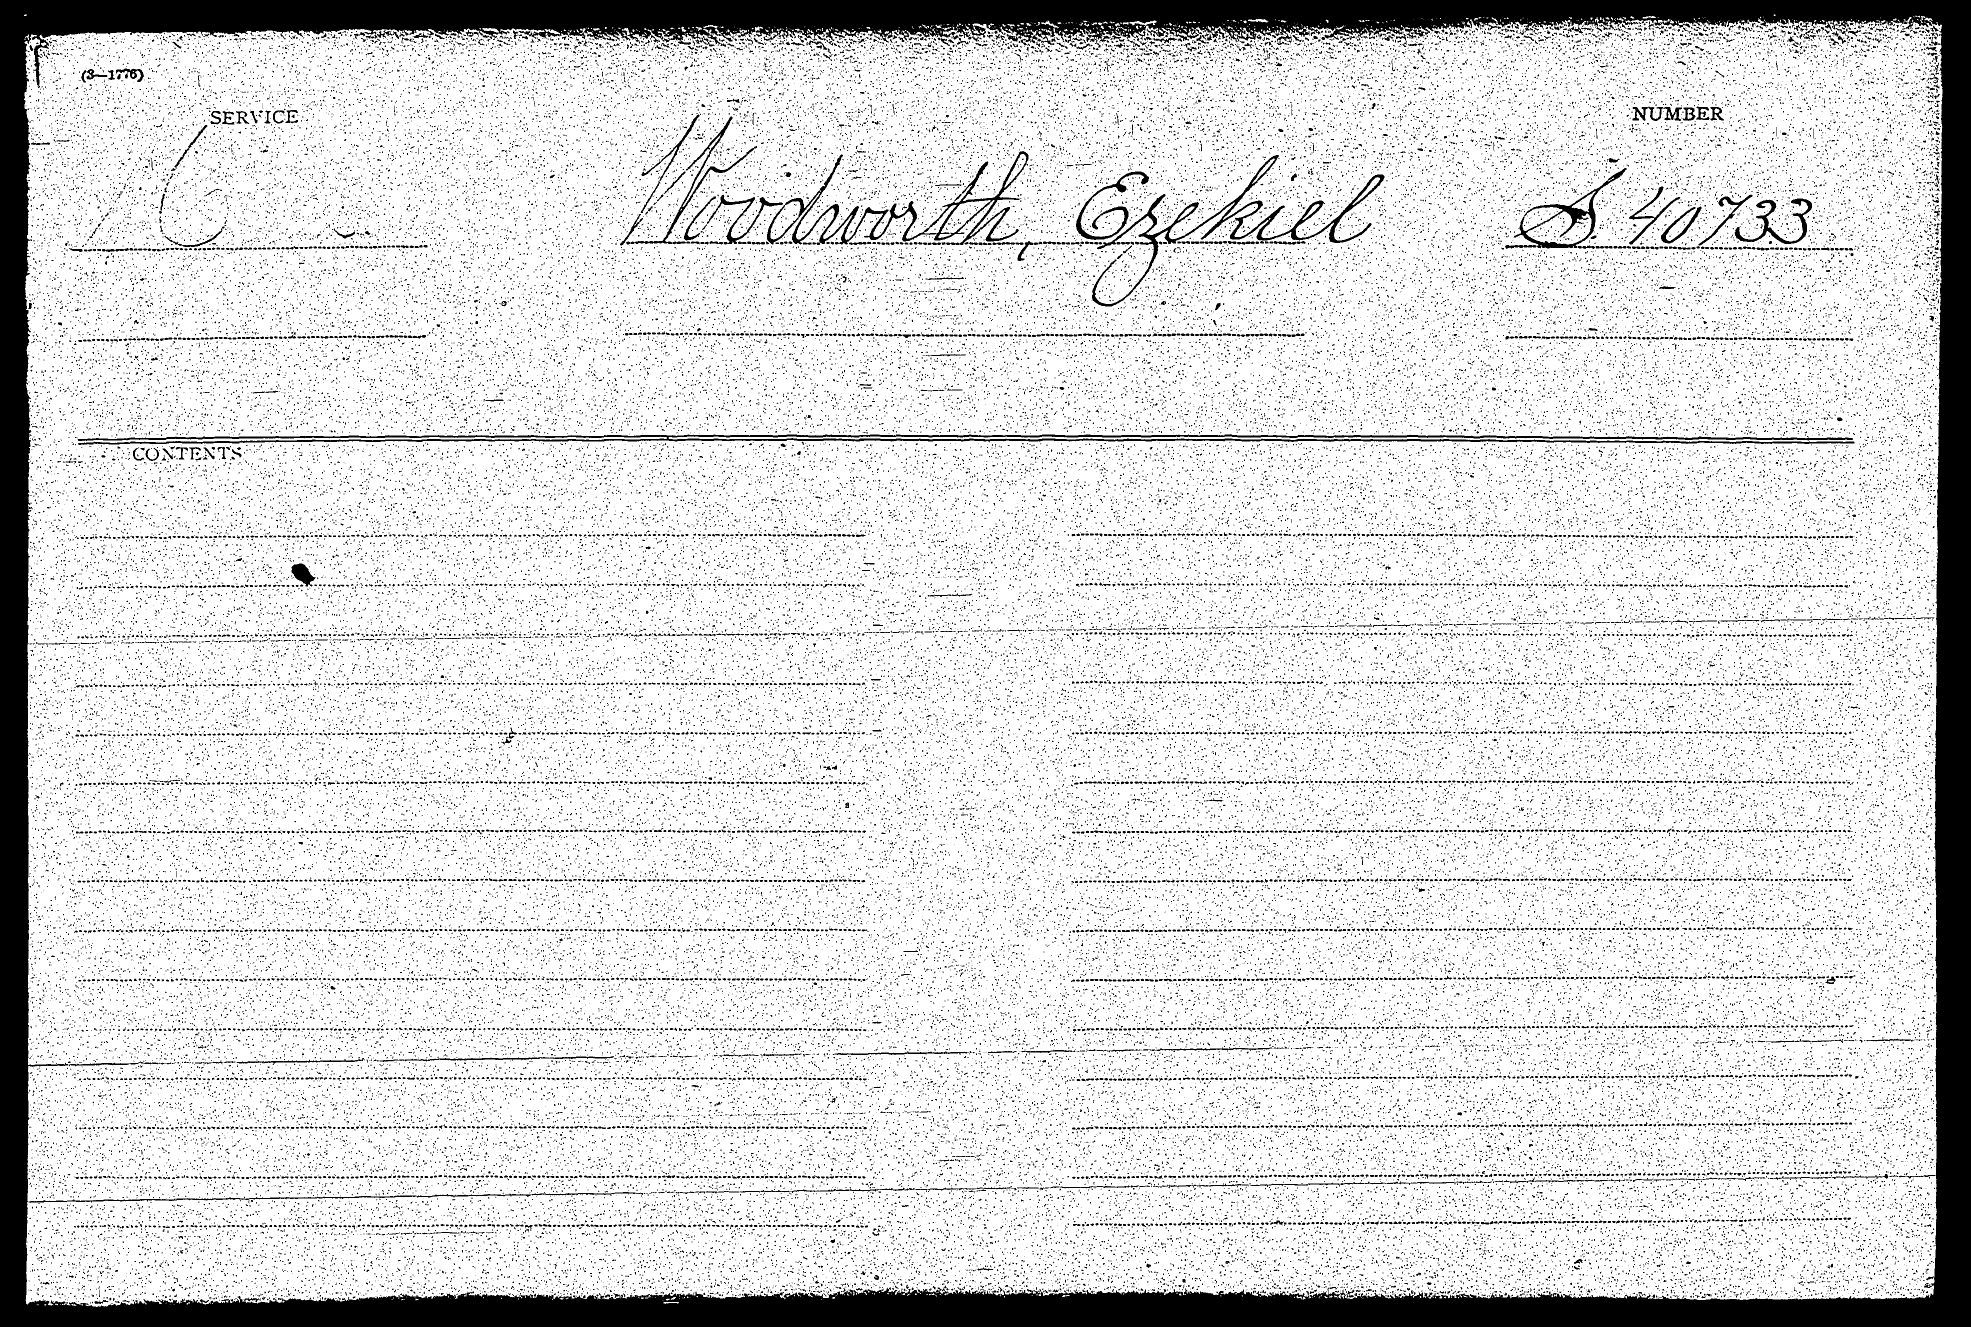 (3—1776)
SERVICE
NUMBER
Woodworth, Ezekiel
S 40733
CONTENTS